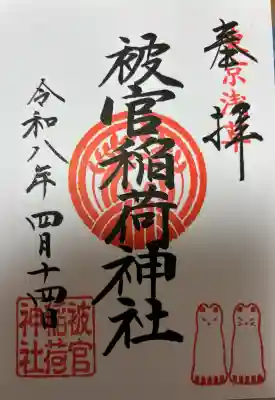 奉拝
東京浅草
被官稲荷神社
令和八年 四月十四日
被官
稲荷
神社